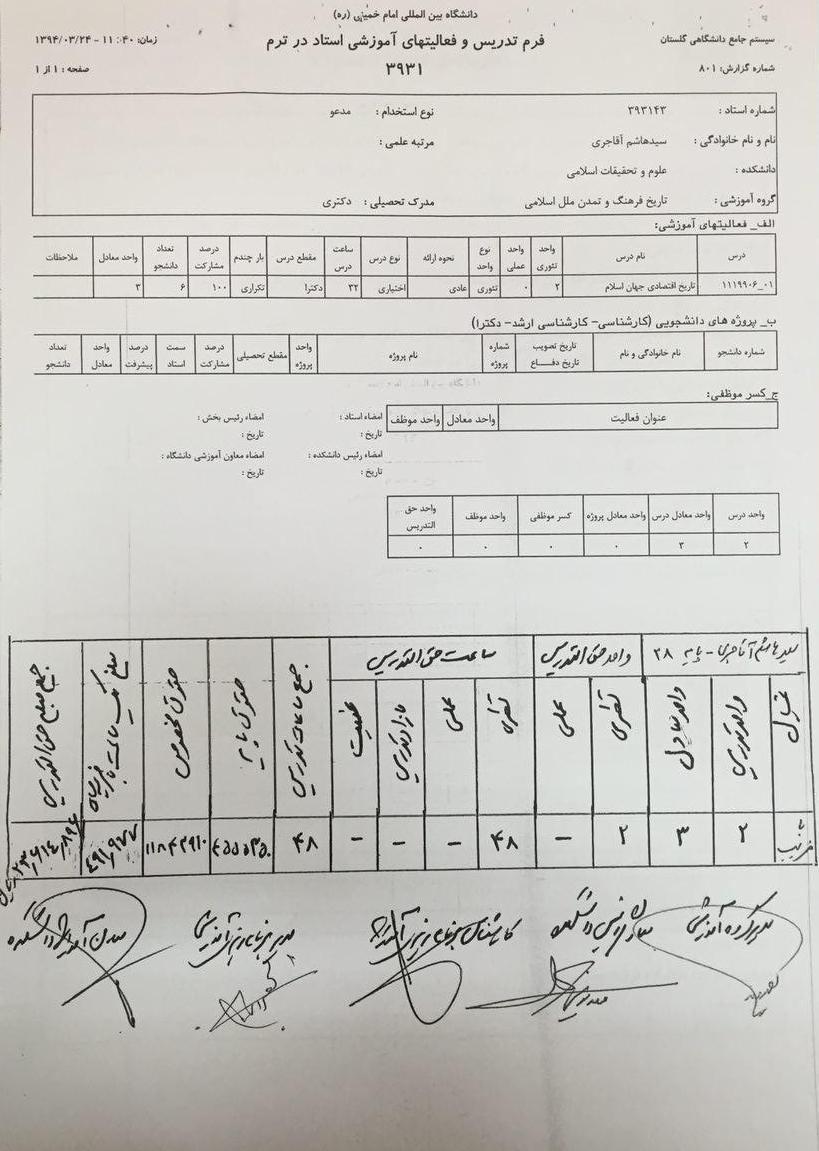 دانشگاه بین المللی امام خمینی (ره)
سیستم جامع دانشگاهی گلستان
فرم تدریس و فعالیتهای آموزشی استاد در ترم
زمان: ۱۱:۴۰ - ۱۳۹۴/۰۳/۲۴
شماره گزارش: ۸۰۱
۳۹۳۱
صفحه : ۱ از ۱
شماره استاد : ۳۹۳۱۴۳ نوع استخدام : مدعو
نام و نام خانوادگی : سیدهاشم آقاجری مرتبه علمی :
دانشکده : علوم و تحقیقات اسلامی
گروه آموزشی : تاریخ فرهنگ و تمدن ملل اسلامی مدرک تحصیلی : دکتری
الف_ فعالیتهای آموزشی:
درس نام درس واحد تئوری واحد عملی نوع واحد نحوه ارائه نوع درس ساعت درس مقطع درس بار چندم درصد مشارکت تعداد دانشجو واحد معادل ملاحظات
۱۱۱۹۹۰۶_۰۱ تاریخ اقتصادی جهان اسلام ۲ ۰ تئوری عادی اختیاری ۳۲ دکترا تکراری ۱۰۰ ۶ ۳
ب_ پروژه های دانشجویی (کارشناسی- کارشناسی ارشد- دکترا)
شماره دانشجو نام خانوادگی و نام تاریخ تصویب تاریخ دفـــاع شماره پروژه نام پروژه واحد پروژه مقطع تحصیلی درصد مشارکت سمت استاد درصد پیشرفت واحد معادل تعداد دانشجو
ج_کسر موظفی:
عنوان فعالیت واحد معادل واحد موظف
امضاء استاد : امضاء رئیس بخش :
تاریخ : تاریخ :
امضاء رئیس دانشکده : امضاء معاون آموزشی دانشگاه :
تاریخ : تاریخ :
واحد درس واحد معادل درس واحد معادل پروژه کسر موظفی واحد موظف واحد حق التدریس
۲ ۳ ۰ ۰ ۰ ۰
سید هاشم آقاجری - پایه ۲۸ واحد حق التدریس ساعت حق التدریس
عنوان واحد تدریس واحد معادل نظری عملی نظری عملی مازاد تدریس جمع ساعات تدریس حقوق پایه حقوق مخصوص
با ضریب ۲ ۳ ۲ - ۴۸ - - - ۴۸
مدیر گروه آموزشی معاون آموزشی دانشکده